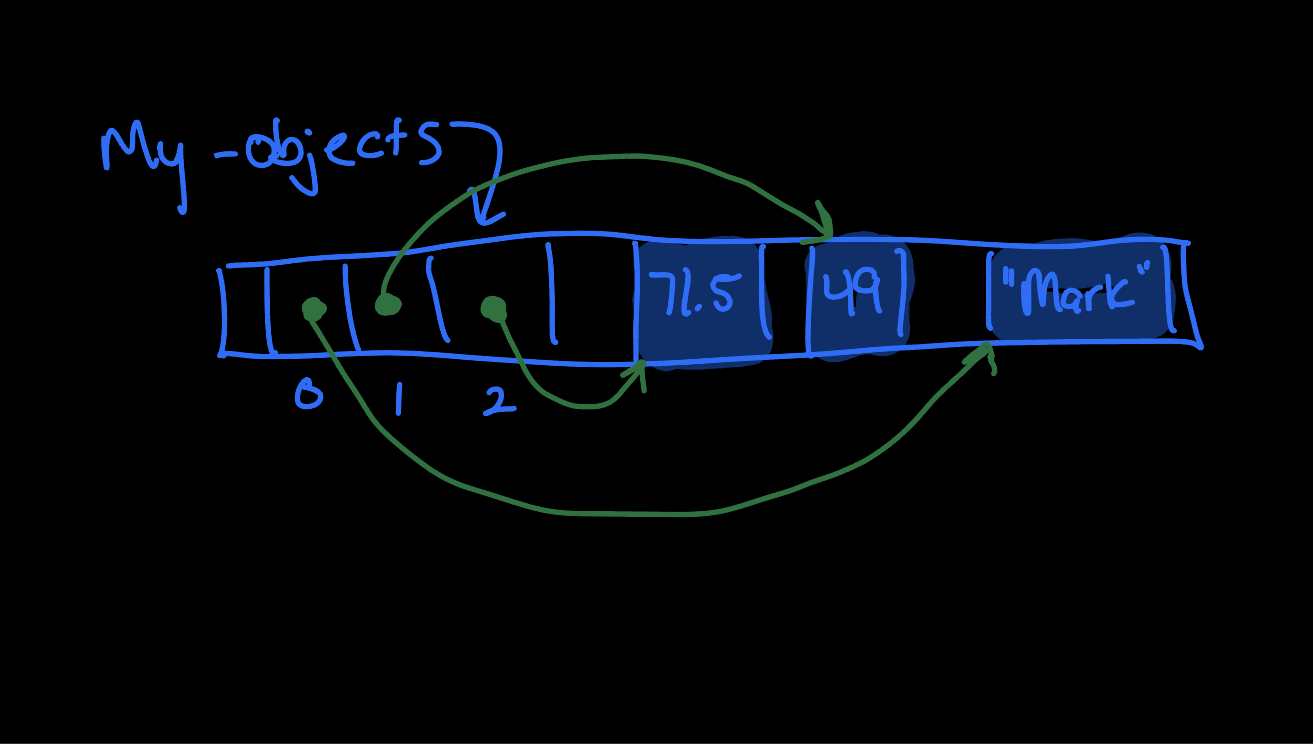 My-objects
71.5 49 "Mark"
0 1 2